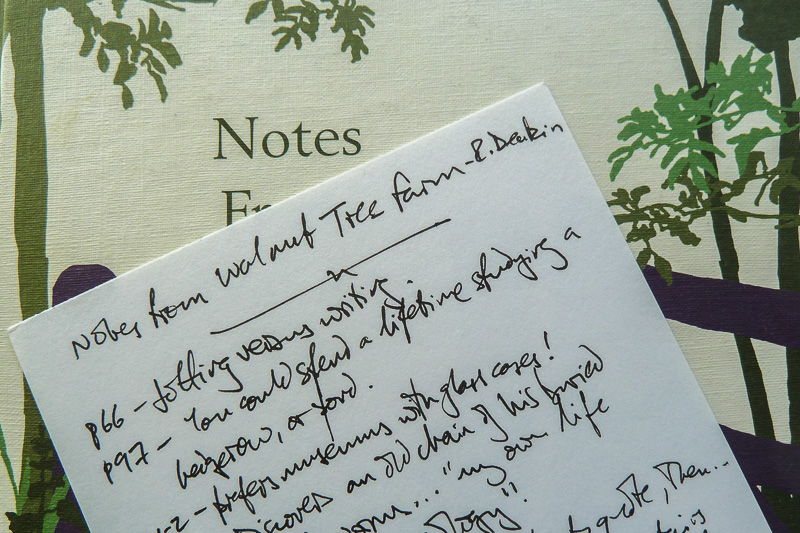 Notes
Notes from Walnut Tree Farm - R. Deakin
p66 - Jotting versus writing.
p97 - You could spend a lifetime studying a
hedgerow, or pond.
2 - prefers museums with glass cases!
discovers an old chair of his buried
"my own life
quote, Then...